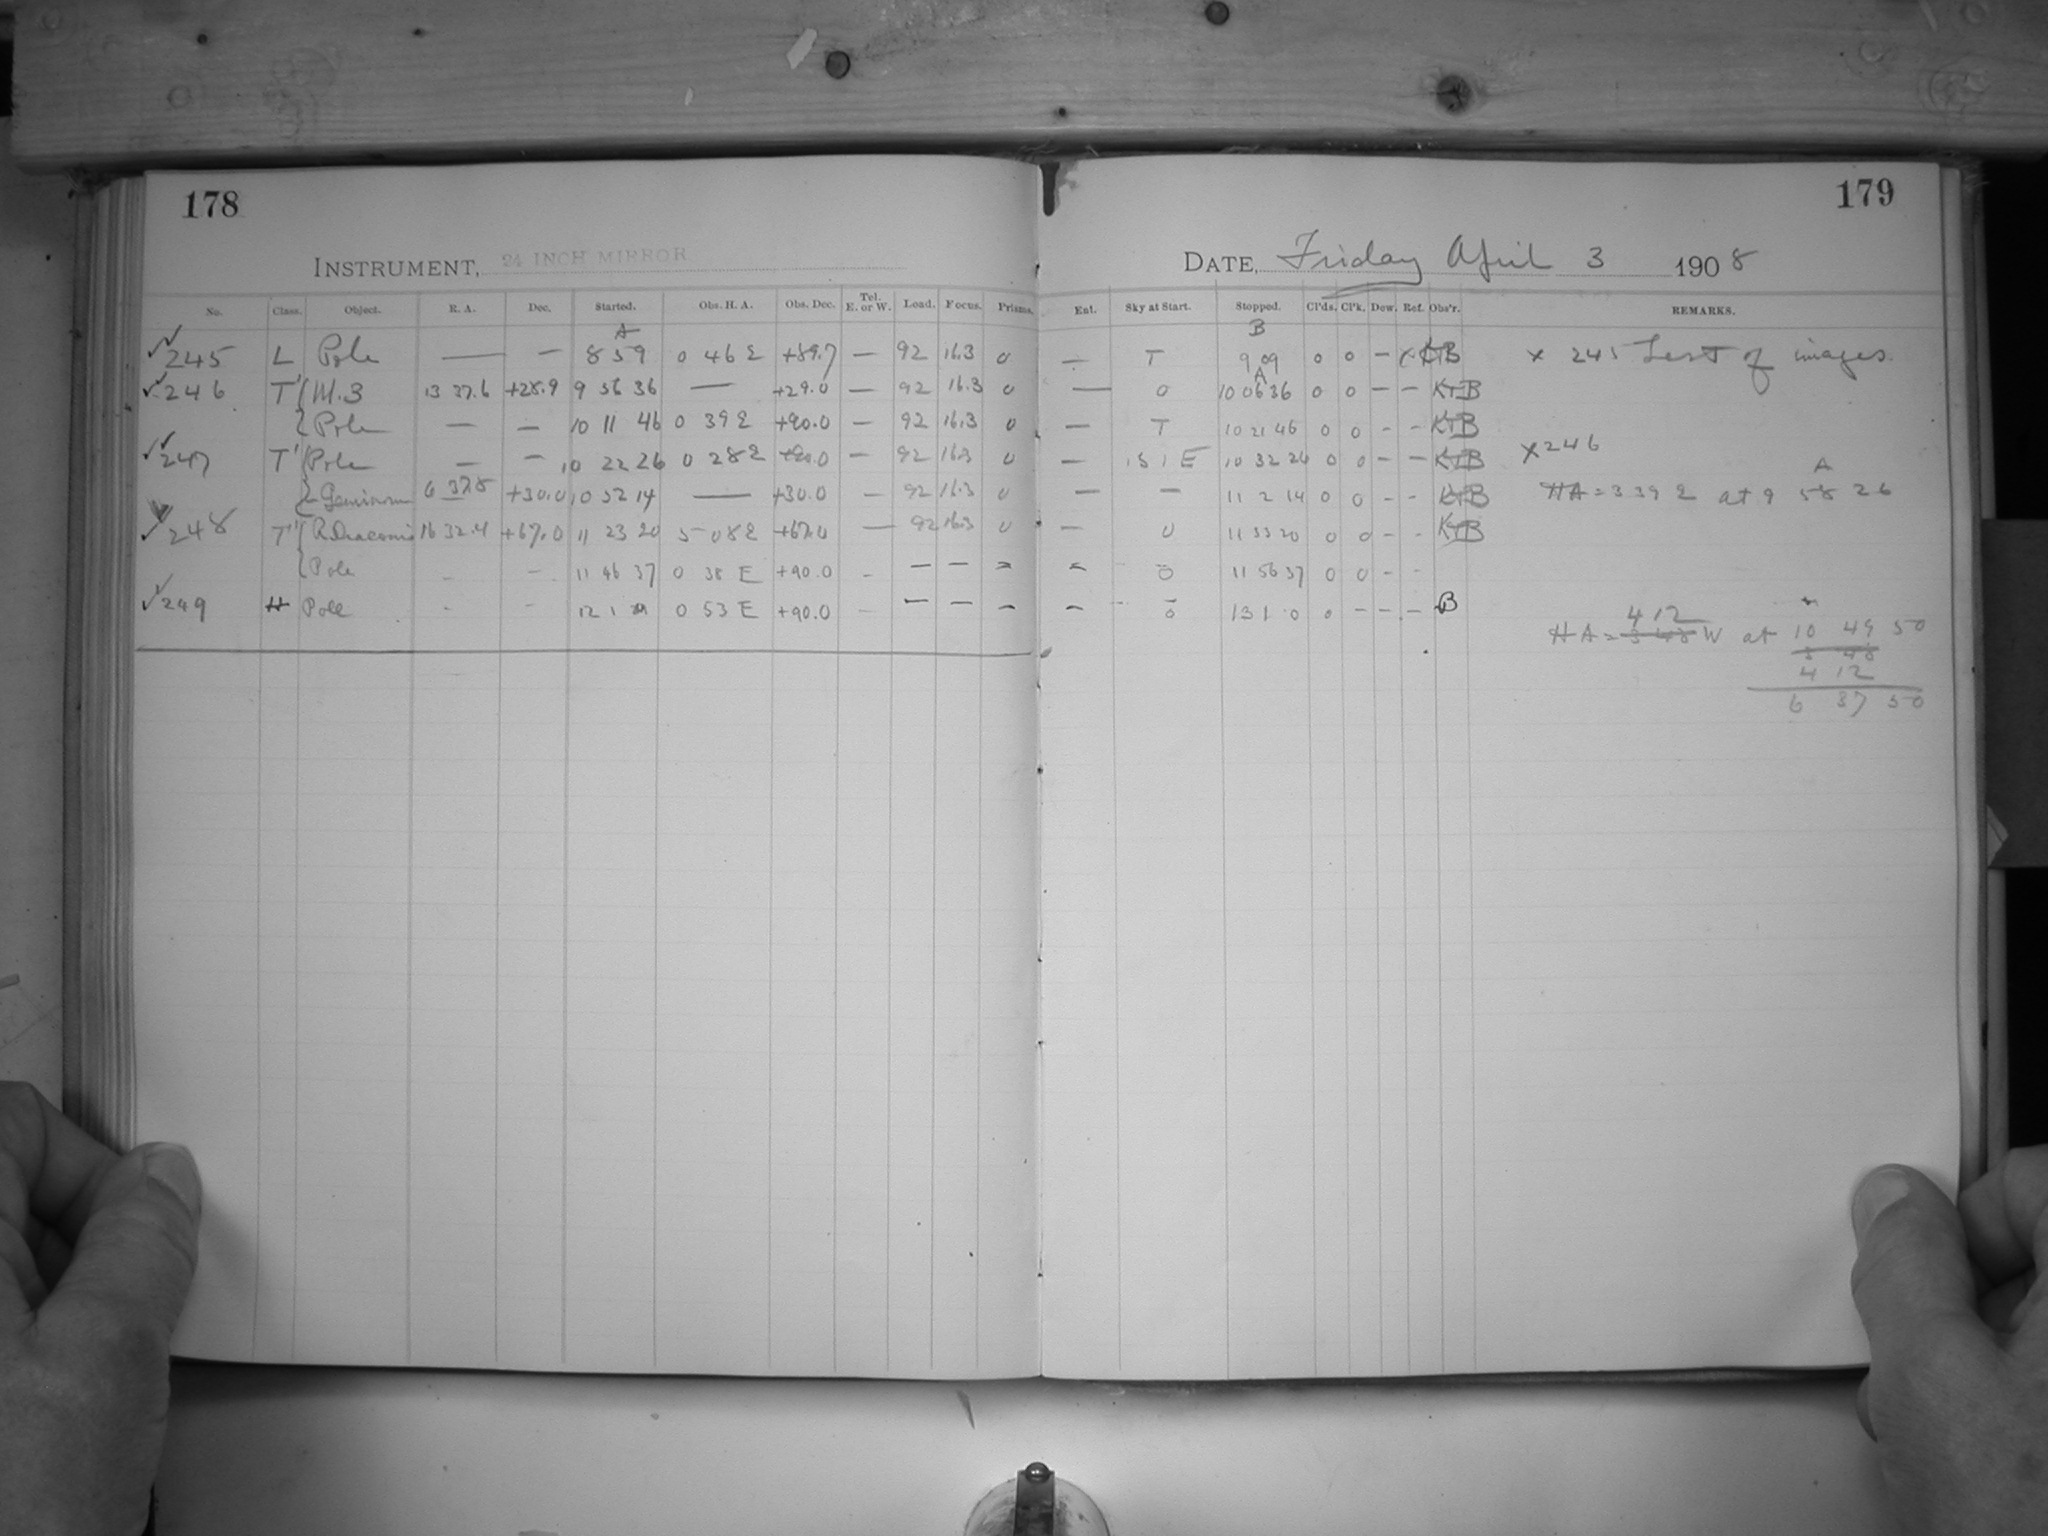 178
INSTRUMENT, 24 INCH MIRROR
No. Class. Object. R. A. Dec. Started. Obs. H. A. Obs. Dec. Tel. E. or W. Load. Focus. Prisms.
A
245 L Pole — — 8 59 0 46 E +89.7 — 92 16.3 0
246 T' M.3 13 37.6 +28.9 9 56 36 — +29.0 — 92 16.3 0
Pole — — 10 11 46 0 39 E +90.0 — 92 16.3 0
247 T' Pole — — 10 22 26 0 28 E +90.0 — 92 16.3 0
Geminorum 6 37.8 +30.0 10 52 14 — +30.0 — 92 16.3 0
248 T' R Draconis 16 32.4 +67.0 11 23 20 5 08 E +67.0 — 92 16.3 0
Pole - - 11 46 37 0 38 E +90.0 - — — -
249 H Pole - - 12 1 0 53 E +90.0 - — — -
179
DATE, Friday April 3 1908
Ent. Sky at Start. Stopped. Cl'ds. Cl'k. Dew. Ref. Obs'r. REMARKS.
B
— T 9 09 0 0 — x KTB x 245 Test of images.
A
— 0 10 06 36 0 0 — — KTB
— T 10 21 46 0 0 - - KTB
x 246
— 151 E 10 32 26 0 0 - - KTB
A
— — 11 2 14 0 0 - - KTB HA = 3 39 E at 9 58 26
— 0 11 33 20 0 0 - - KTB
- 0 11 56 37 0 0 - -
- 0 13 1 0 0 - - - B
4 12
HA = 3 48 W at 10 49 50
3 48
4 12
6 37 50